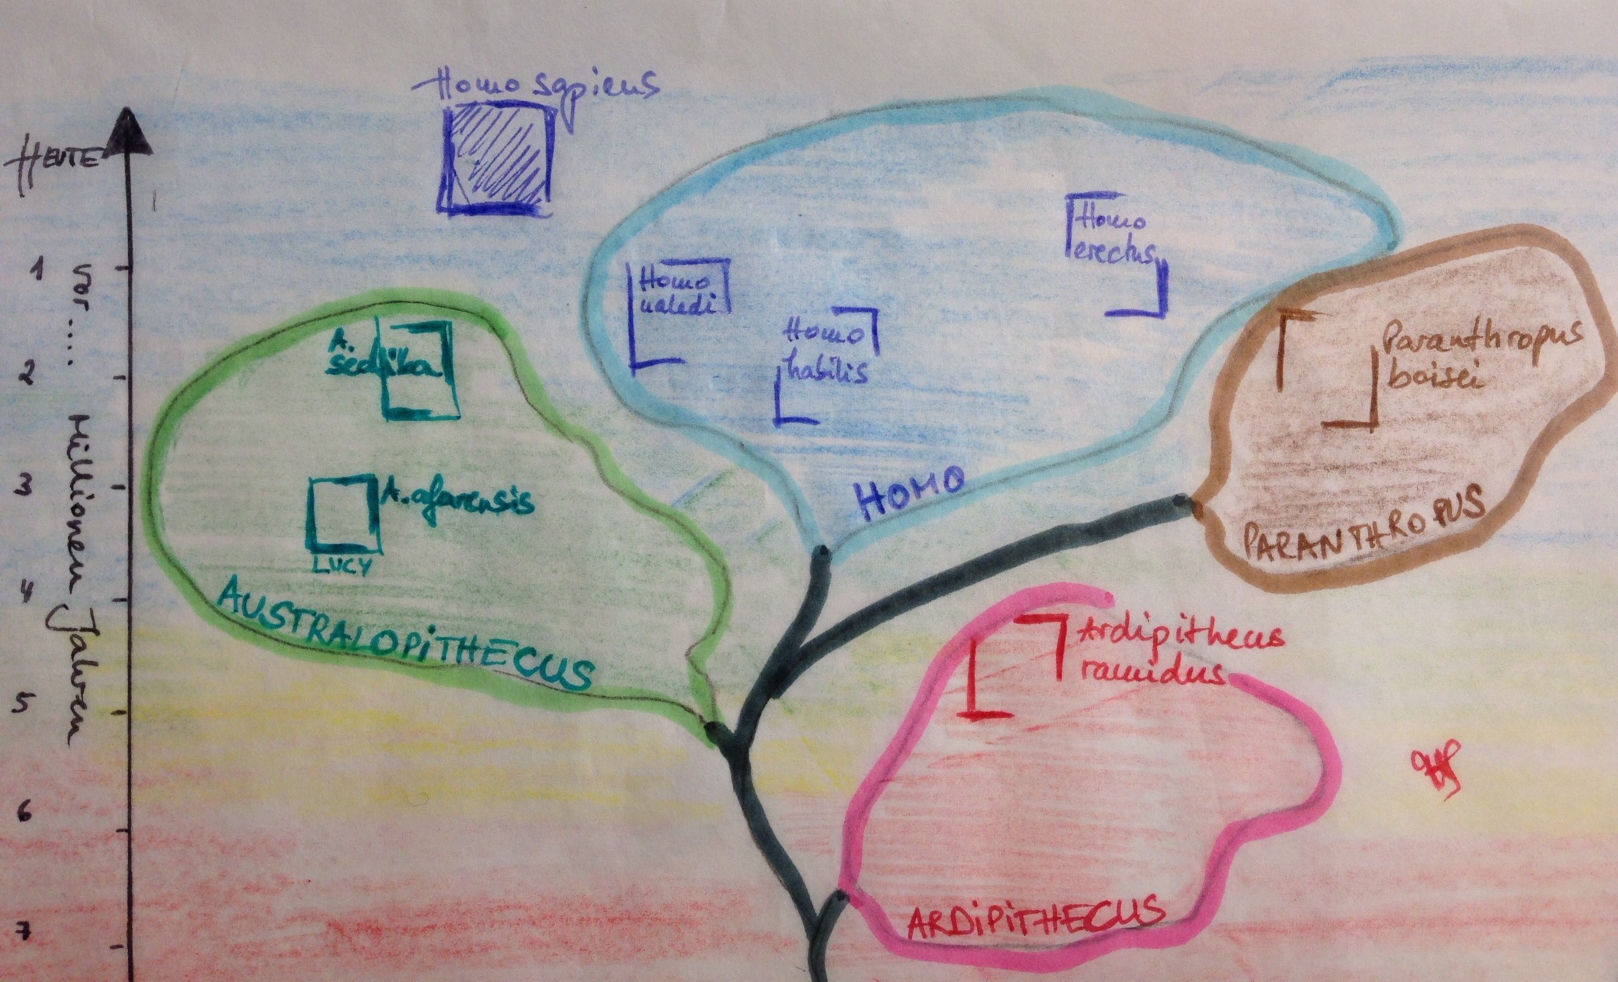 Homo sapiens
HEUTE
1
2
3
4
5
6
7
vor .... Millionen Jahren
Homo
erectus
Homo
naledi
Homo
habilis
A.
sediba
Paranthropus
boisei
A. afarensis
LUCY
HOMO
PARANTHROPUS
AUSTRALOPITHECUS
Ardipithecus
ramidus
ARDIPITHECUS